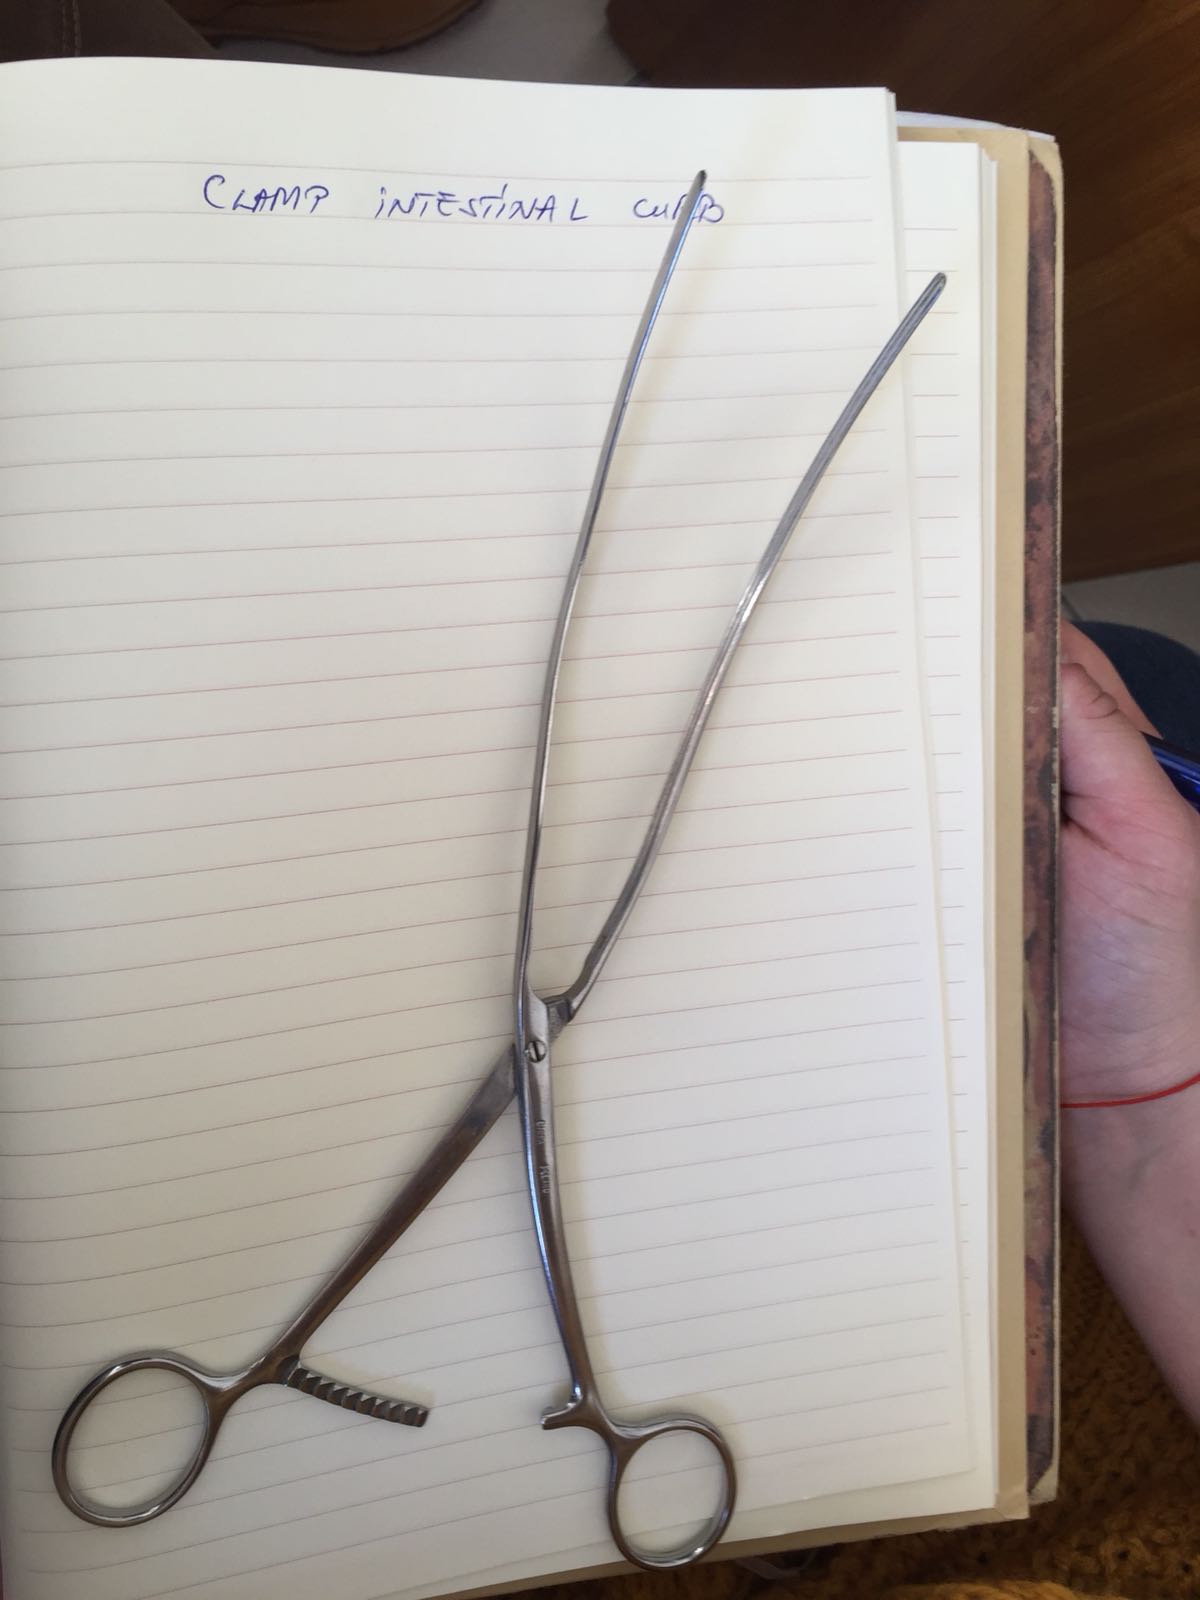 CLAMP INTESTINAL CURB